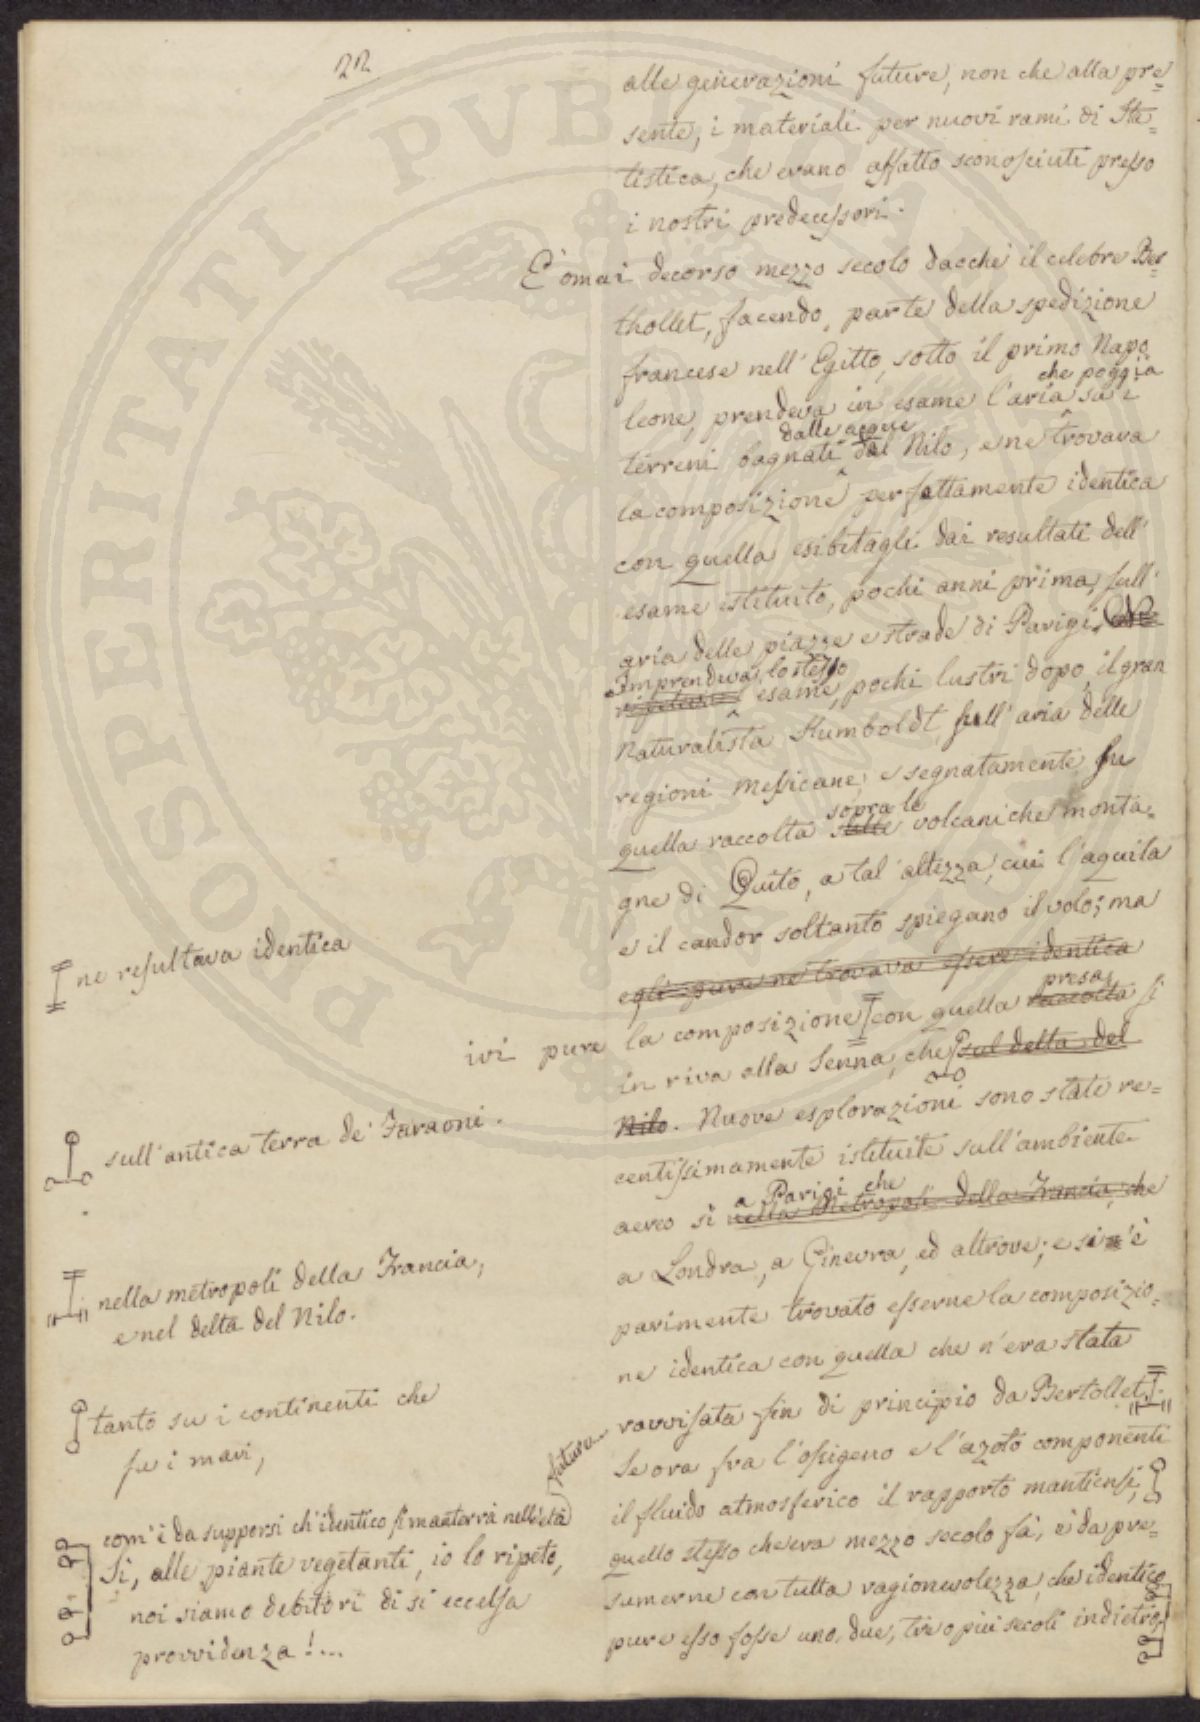 22
alle generazioni future, non che alla pre=
sente, i materiali per nuovi rami di Sta=
tistica, che erano affatto sconosciuti presso
i nostri predecessori.
E' omai decorso mezzo secolo dacchè il celebre Ber=
thollet, facendo, parte della spedizione
francese nell'Egitto, sotto il primo Napo
che poggia
leone, prendeva in esame l'aria su i
dalle acque
terreni bagnati dal Nilo, e ne trovava
la composizione perfettamente identica
con quella esibitagli dai resultati dell'
esame istituito, pochi anni prima, sull'
aria delle piazze e strade di Parigi.
Imprendeva lo stesso
esame, pochi lustri dopo, il gran
Naturalista Humboldt sull'aria delle
regioni Messicane, e segnatamente su
sopra le
quella raccolta sulle volcaniche monta=
gne di Quito, a tal'altezza, cui l'aquila
e il candor soltanto spiegano il volo; ma
egli pure ne trovava essere identica
ne resultava identica
presa
ivi pure la composizione con quella raccolta sì
in riva alla Senna, che sul delta del
Nilo. Nuove esplorazioni sono state re=
sull'antica terra de' Faraoni.
centissimamente istituite sull'ambiente
a Parigi che
aereo sì nella Metropoli della Francia, che
a Londra, a Ginevra, ed altrove; e si è
nella metropoli della Francia,
e nel delta del Nilo.
parimente trovato esserne la composizio=
ne identica con quella che n'era stata
ravvisata fin di principio da Bertollet.
tanto su i continenti che
su i mari,
Se ora fra l'ossigeno e l'azoto componenti
il fluido atmosferico il rapporto mantiensi
quello stesso che era mezzo secolo fà, è da pre=
sumerne con tutta ragionevolezza, che identico
pure esso fosse uno, due, tre o più secoli indietro,
futura
com'è da supporsi ch'identico si manterrà nell'età
Sì, alle piante vegetanti, io lo ripeto,
noi siamo debitori di sì eccelsa
provvidenza!...
PROSPERITATI PVBLICAE